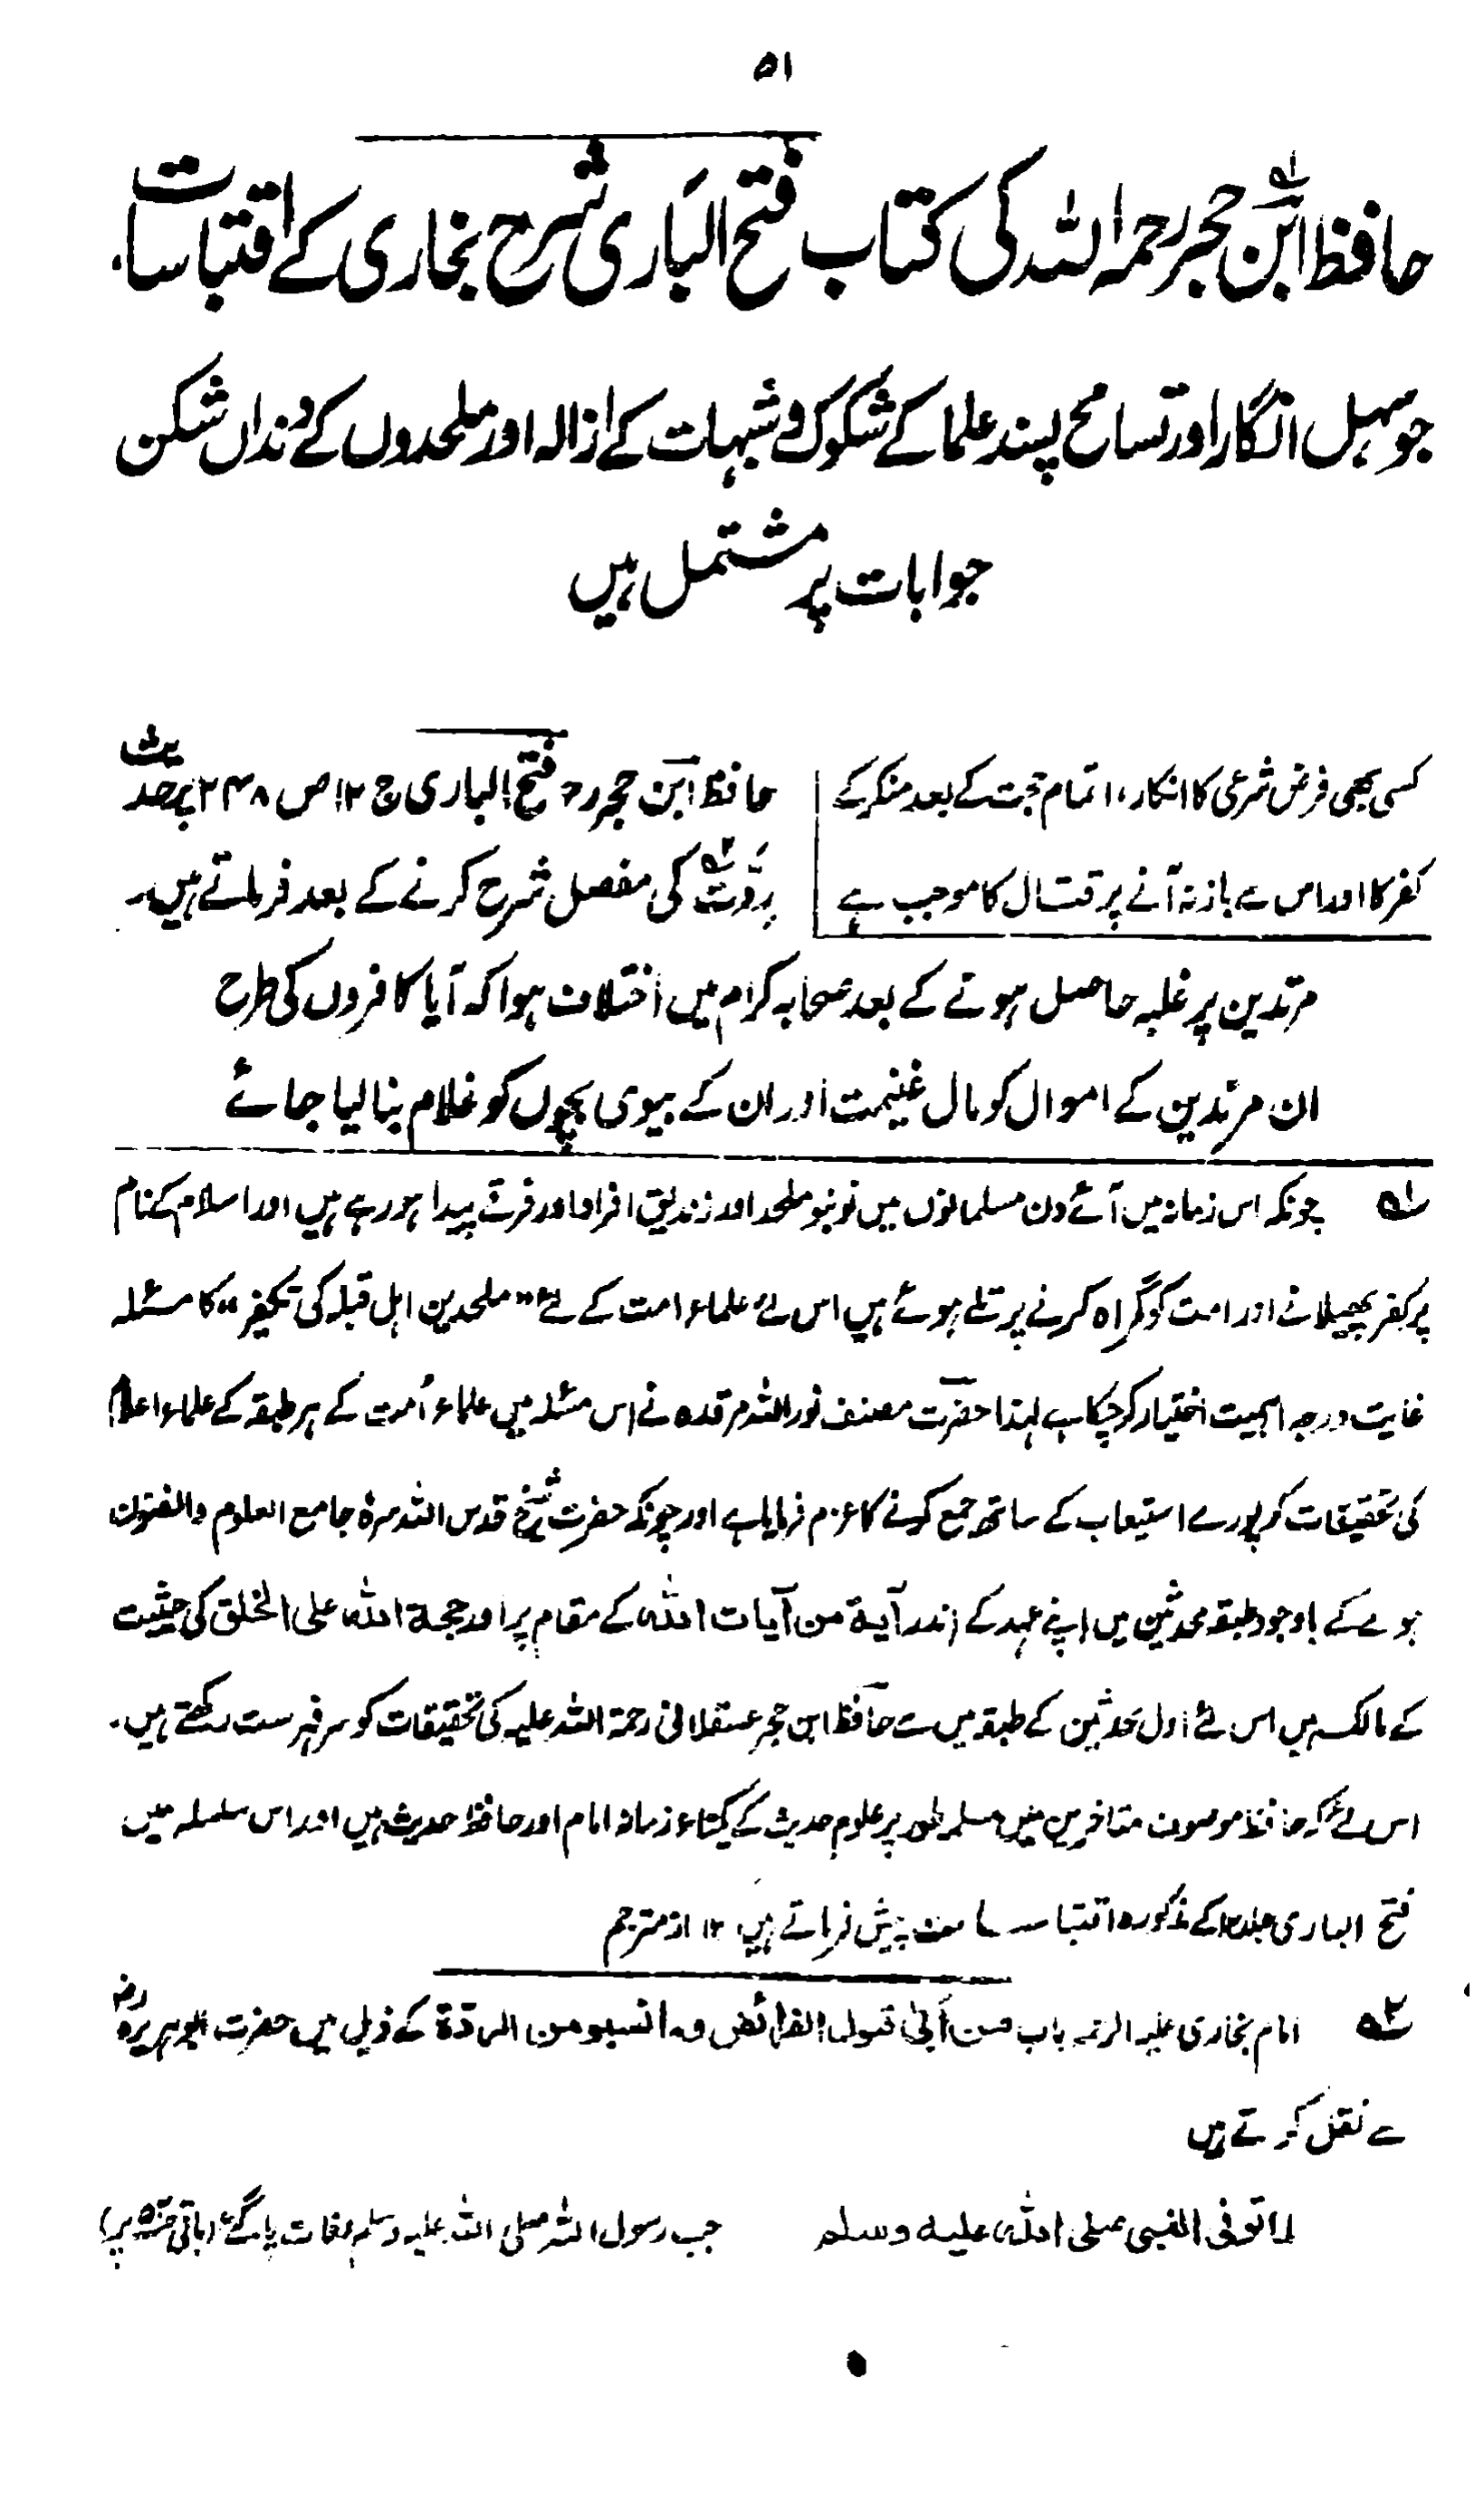 ۵۱
حافظ ابن حجر رحمہ اللہ کی کتاب فتح الباری شرح بخاری کے اقتباسات،
جو سہل انگار اور تسامح پسند علما کے شکوک و شبہات کے ازالہ اور ملحدوں کے دنداں شکن
جوابات پر مشتمل ہیں
کسی بھی فرض شرعی کا انکار، اتمام حجت کے بعد منکر کے
کفر کا اور اس سے باز نہ آنے پر قتال کا موجب ہے
حافظ ابن حجرؒ، فتح الباری ج ۱۲ ص ۲۴۸ پر حدیث
ردّت۲ کی مفصل شرح کرنے کے بعد فرماتے ہیں۔
مرتدین پر غلبہ حاصل ہونے کے بعد صحابہ کرام میں اختلاف ہوا کہ آیا کافروں کی طرح
ان مرتدین کے اموال کو مال غنیمت اور ان کے بیوی بچوں کو غلام بنا لیا جائے
۱ چونکہ اس زمانہ میں آئے دن مسلمانوں میں نو بنو ملحد اور زندیق افراد اور فرقے پیدا ہو رہے ہیں اور اسلام کے نام
پر کفر پھیلانے اور امت کو گمراہ کرنے پر تلے ہوئے ہیں اس لئے علماء امت کے لئے "ملحدین اہل قبلہ کی تکفیر" کا مسئلہ
غایت درجہ اہمیت اختیار کر چکا ہے لہٰذا حضرت مصنف نور اللہ مرقدہ نے اس مسئلہ میں علماء اُمت کے ہر طبقہ کے علماء اعلام
کی تحقیقات کو پورے استیعاب کے ساتھ جمع کرنے کا عزم فرمایا ہے اور چونکہ حضرت شیخ قدس اللہ سرہ جامع العلوم والفنون
ہونے کے باوجود طبقہ محدثین میں اپنے عہد کے اندر آیة من آیات اللہ کے مقام پر اور حجة اللہ علی الخلق کی حیثیت
کے مالک ہیں اس لئے اول محدثین کے طبقہ میں سے حافظ ابن حجر عسقلانی رحمۃ اللہ علیہ کی تحقیقات کو سر فہرست رکھتے ہیں۔
اس لئے کہ حافظ موصوف متاخرین میں مسلمہ طور پر علوم حدیث کے یکتاء زمانہ امام اور حافظ حدیث ہیں اور اس سلسلہ میں
فتح الباری جلد ۱۲ کے مذکورہ اقتباسات پیش فرماتے ہیں ۱۲ از مترجم
۲ امام بخاری علیہ الرحمہ باب من أبی قبول الفرائض وما نسبوا من الردة کے ذیل میں حضرت ابوہریرہؓ
سے نقل کرتے ہیں
لما توفی النبی صلی اللہ علیہ وسلم جب رسول اللہ صلی اللہ علیہ وسلم وفات پا گئے (باقی صفحہ پر)